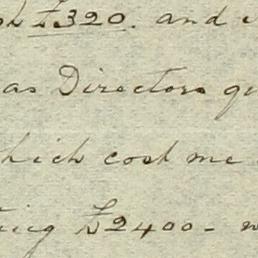 £320. and
as Directors qu
hich cost me
ing £2400 -